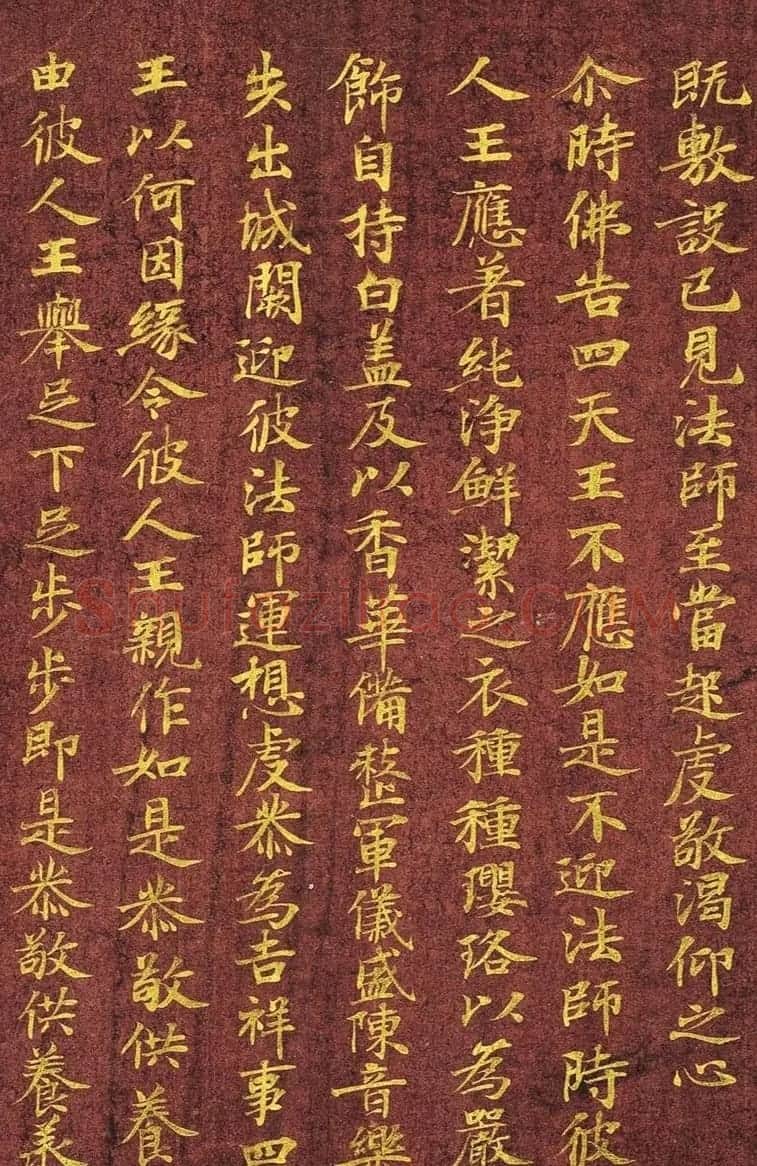 既敷設已見法師至當起虔敬渴仰之心
尒時佛告四天王不應如是不迎法師時彼
人王應著純淨鮮潔之衣種種瓔珞以為嚴
飾自持白蓋及以香華備整軍儀盛陳音樂
步出城闕迎彼法師運想虔恭為吉祥事四
王以何因緣令彼人王親作如是恭敬供養
由彼人王舉足下足步步即是恭敬供養承